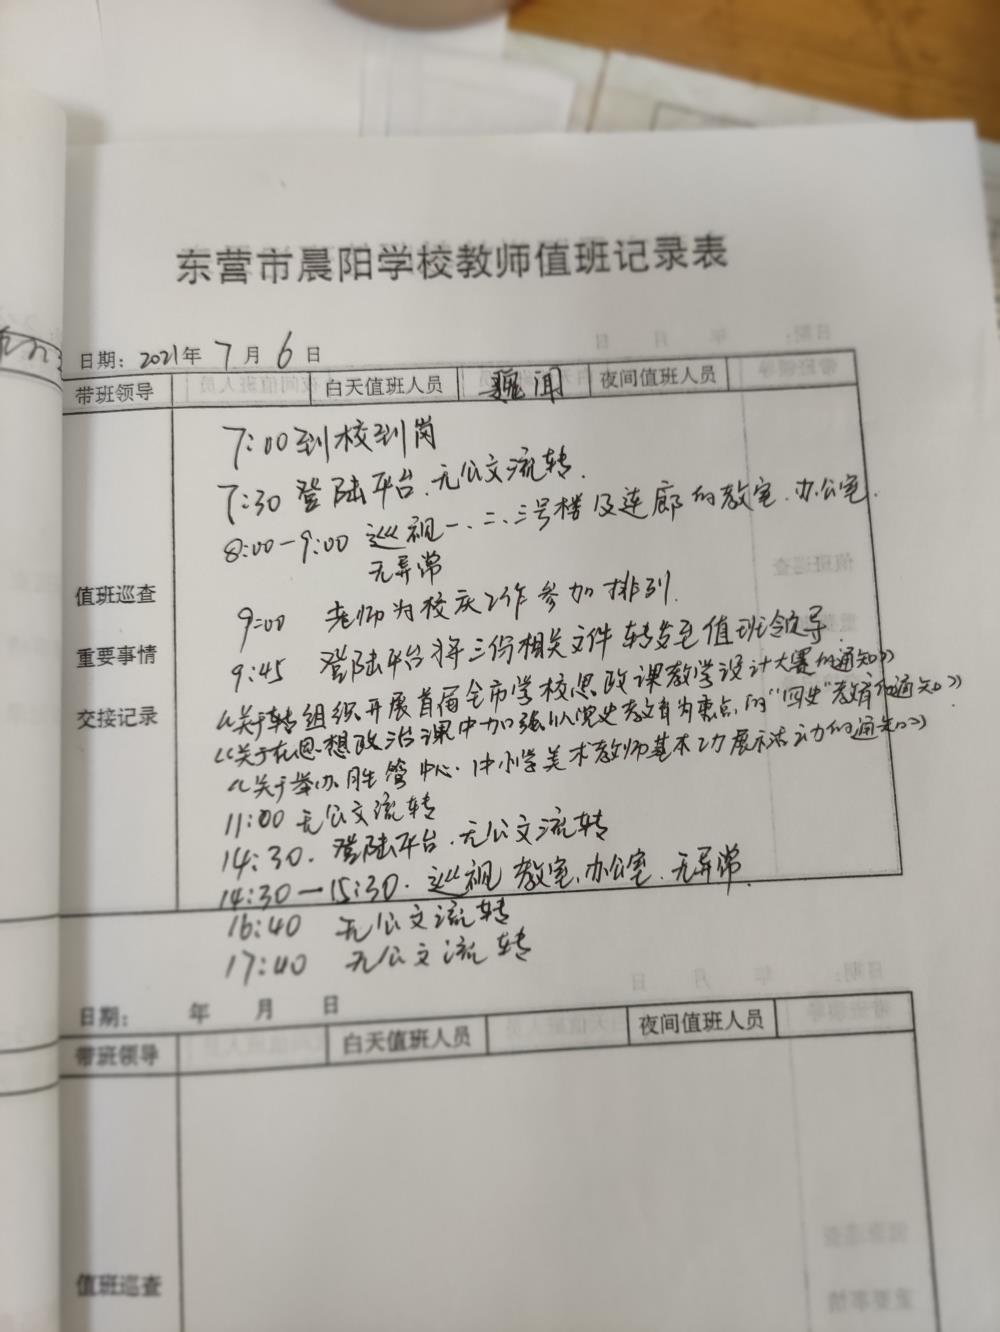 东营市晨阳学校教师值班记录表
日期：2021年 7 月 6 日
带班领导 白天值班人员 闻 夜间值班人员
7:00 到校到岗
7:30 登陆平台.无公文流转.
8:00-9:00 巡视一、二、三号楼及连廊的教室、办公室.
无异常
值班巡查
9:00 老师为校庆工作参加排列.
重要事情
9:45 登陆平台将三份相关文件转发至值班领导
交接记录
《关于转组织开展首届全市学校思政课教学设计大赛的通知》
《关于在思想政治课中加强以党史教育为重点的"四史"教育的通知》
《关于举办胜管中心.中小学美术教师基本功展示活动的通知》
11:00 无公文流转
14:30. 登陆平台.无公文流转
14:30-15:30. 巡视教室、办公室.无异常.
16:40 无公文流转
17:40 无公文流转
日期： 年 月 日
带班领导 白天值班人员 夜间值班人员
值班巡查